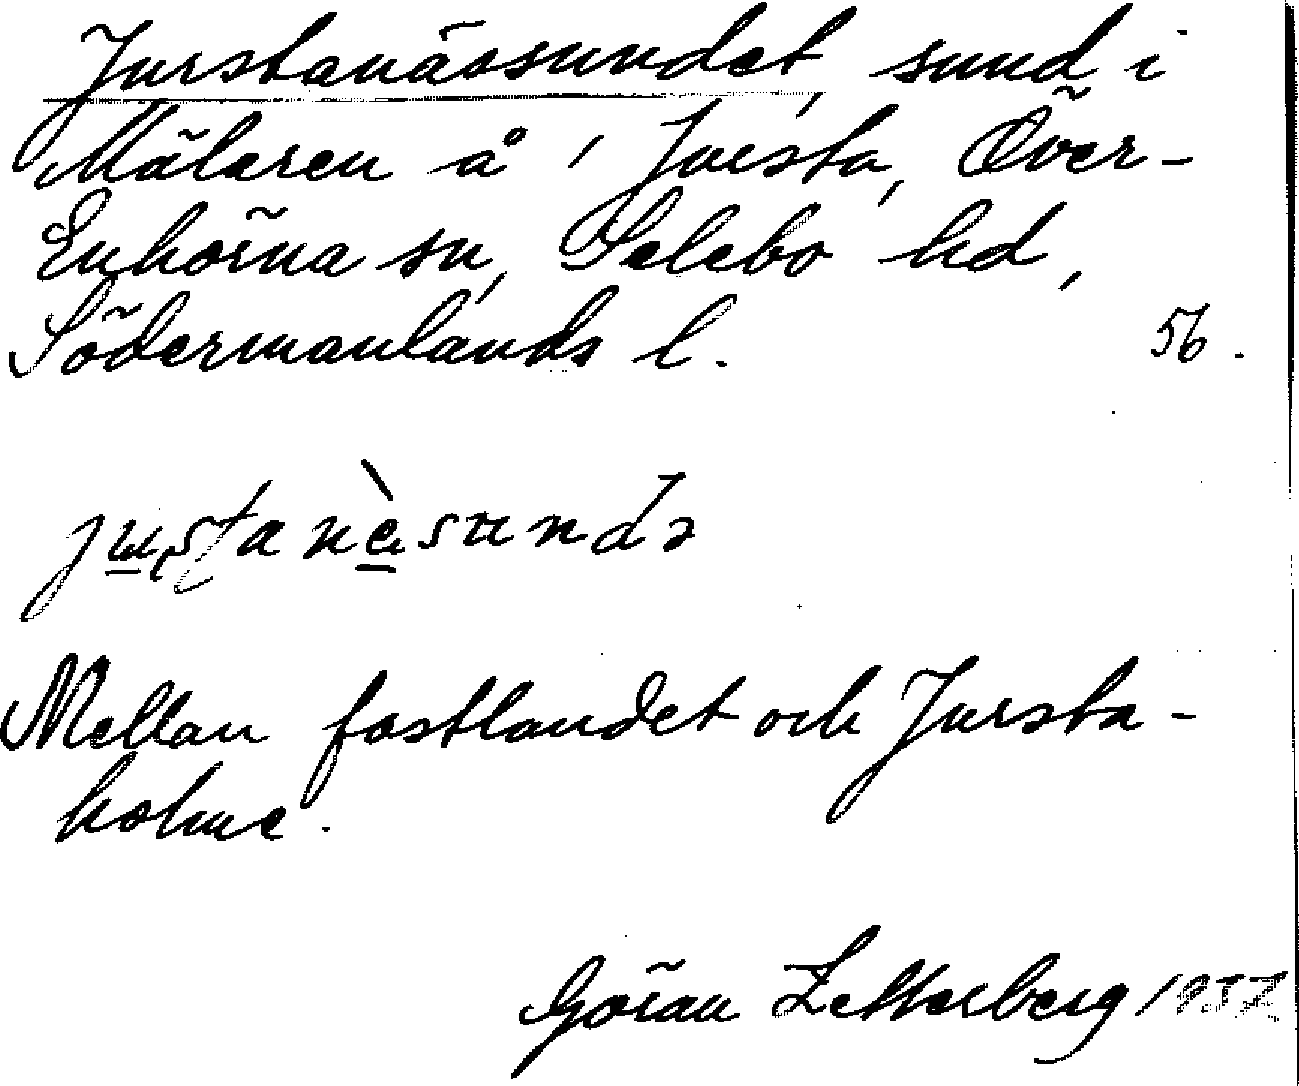 Jurstanässundet, sund i
Mälaren å ' Jursta, Över-
Enhörna sn, Selebo hd,
Södermanlands l. 56.
Mellan fastlandet och Jursta-
holme.
Göran Zetterberg 1937